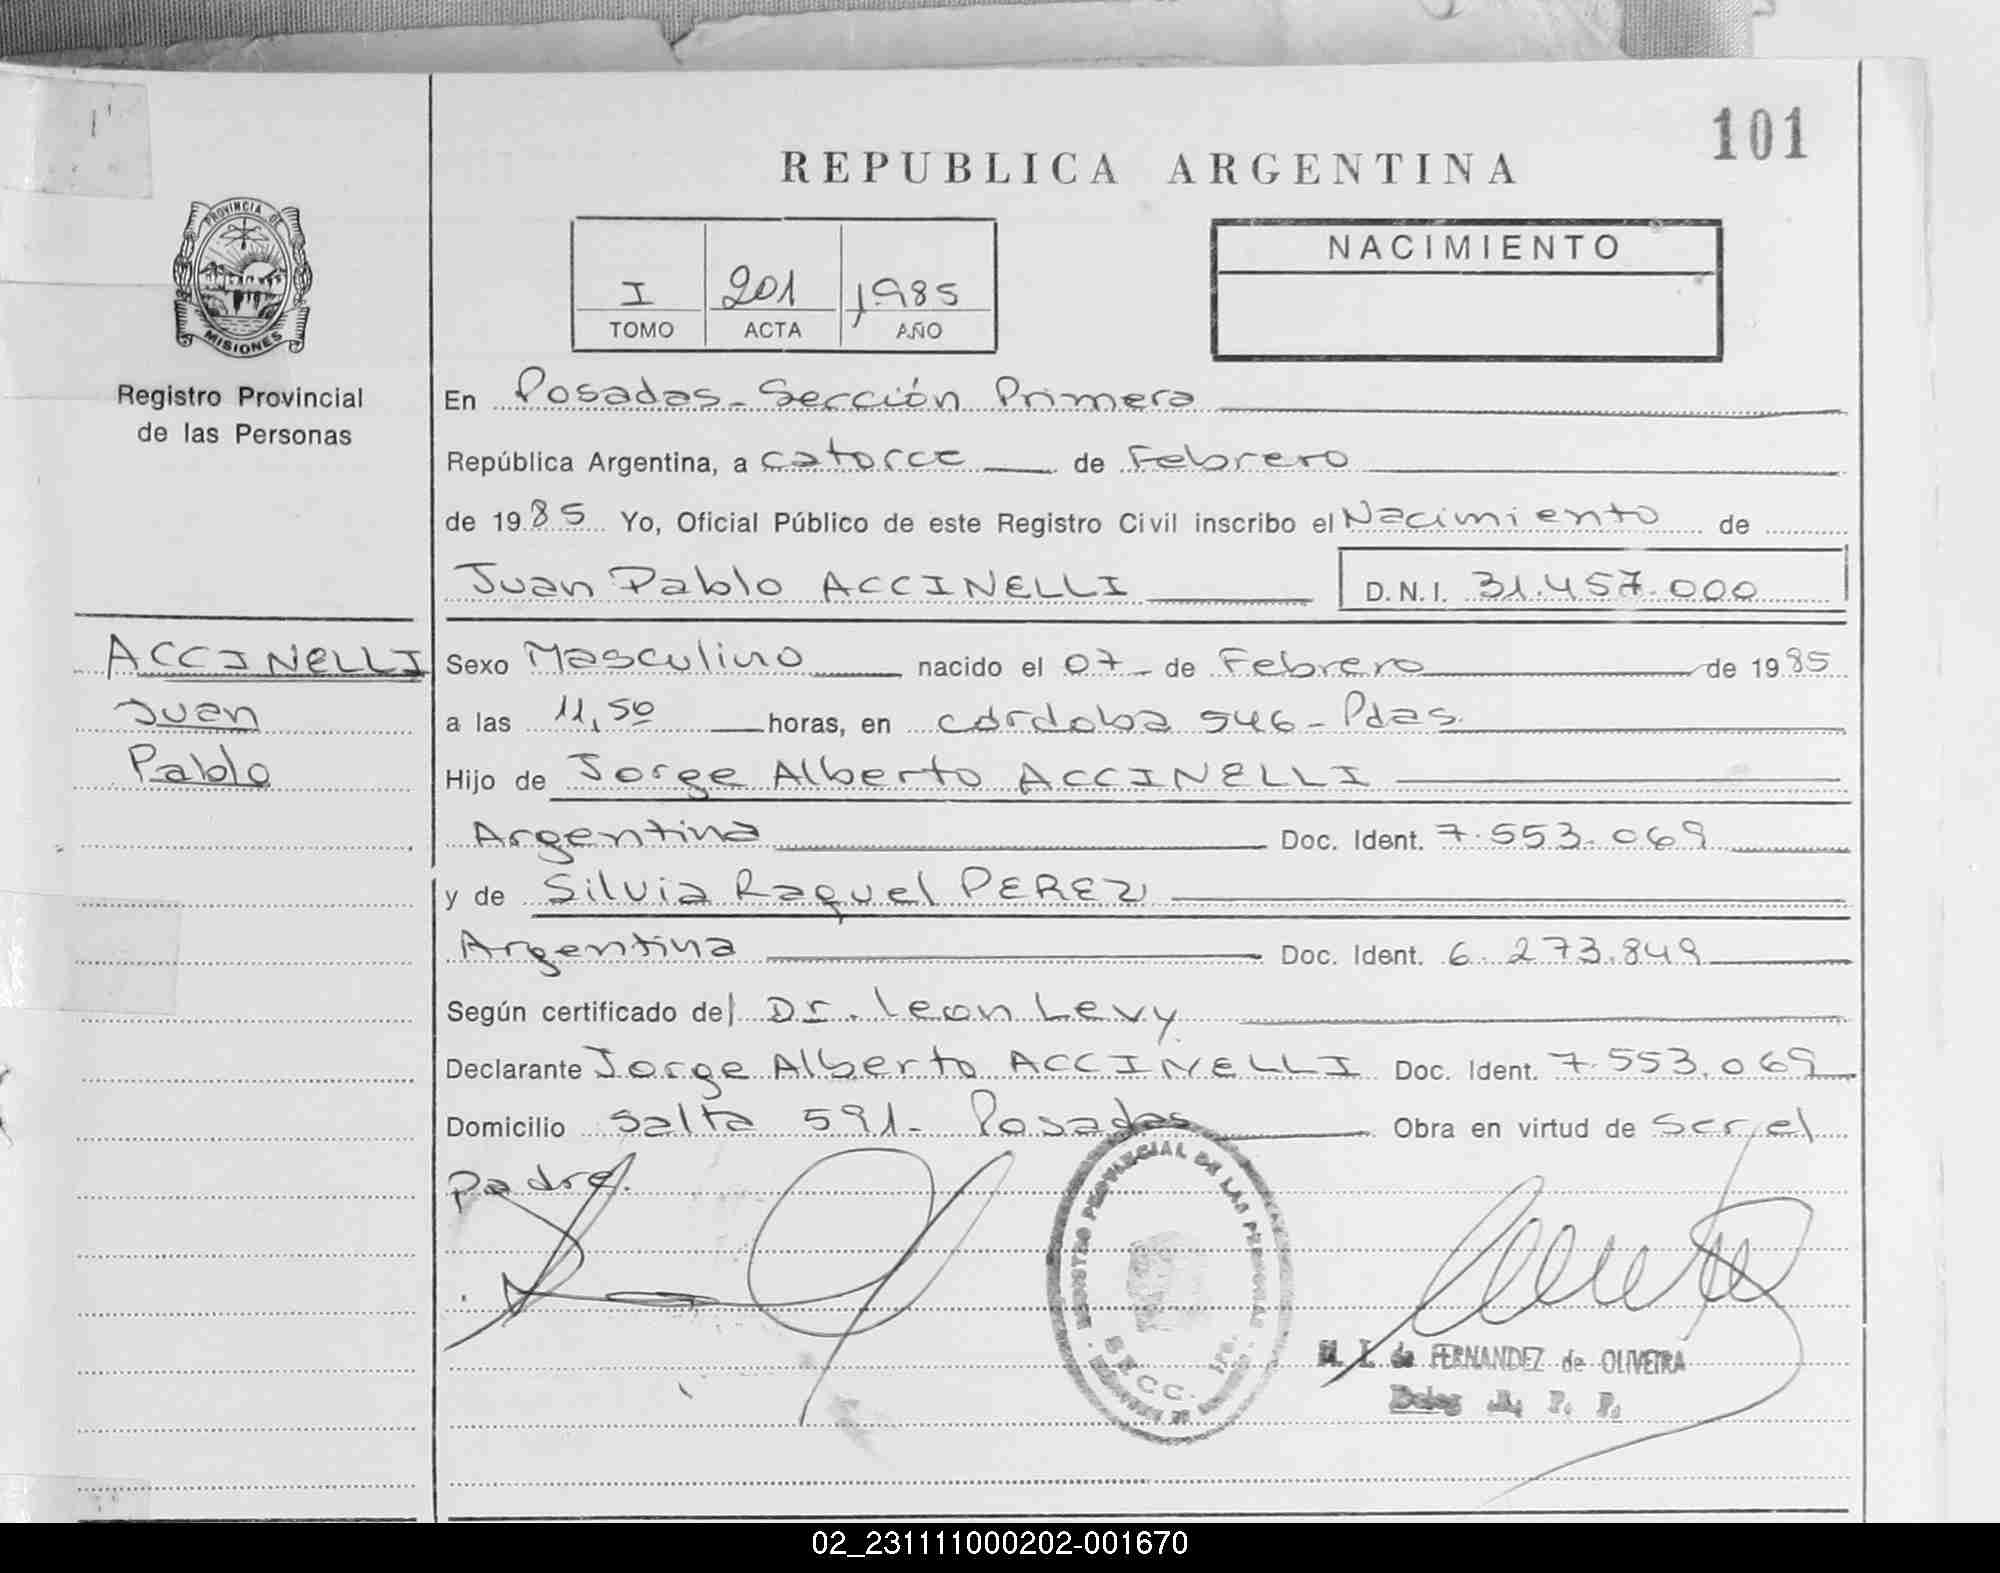 101
REPUBLICA ARGENTINA
PROVINCIA DE
MISIONES
Registro Provincial
de las Personas
I 201 1985
TOMO ACTA AÑO
NACIMIENTO
En Posadas - Sección Primera
República Argentina, a catorce de Febrero
de 1985 Yo, Oficial Público de este Registro Civil inscribo el Nacimiento de
Juan Pablo ACCINELLI D.N.I. 31.457.000
ACCINELLI
Juan
Pablo
Sexo Masculino nacido el 07 de Febrero de 1985
a las 11,50 horas, en córdoba 546 - Pdas.
Hijo de Jorge Alberto ACCINELLI
Argentina Doc. Ident. 7.553.069
y de Silvia Raquel PEREZ
Argentina Doc. Ident. 6.273.849
Según certificado del Dr. Leon Levy
Declarante Jorge Alberto ACCINELLI Doc. Ident. 7.553.069
Domicilio Salta 591 - Posadas Obra en virtud de Ser el
Padre.
REGISTRO PROVINCIAL DE LAS PERSONAS
SECC. 1ra.
M. I. de FERNANDEZ de OLIVEIRA
Deleg. R. P. P.
02_231111000202-001670